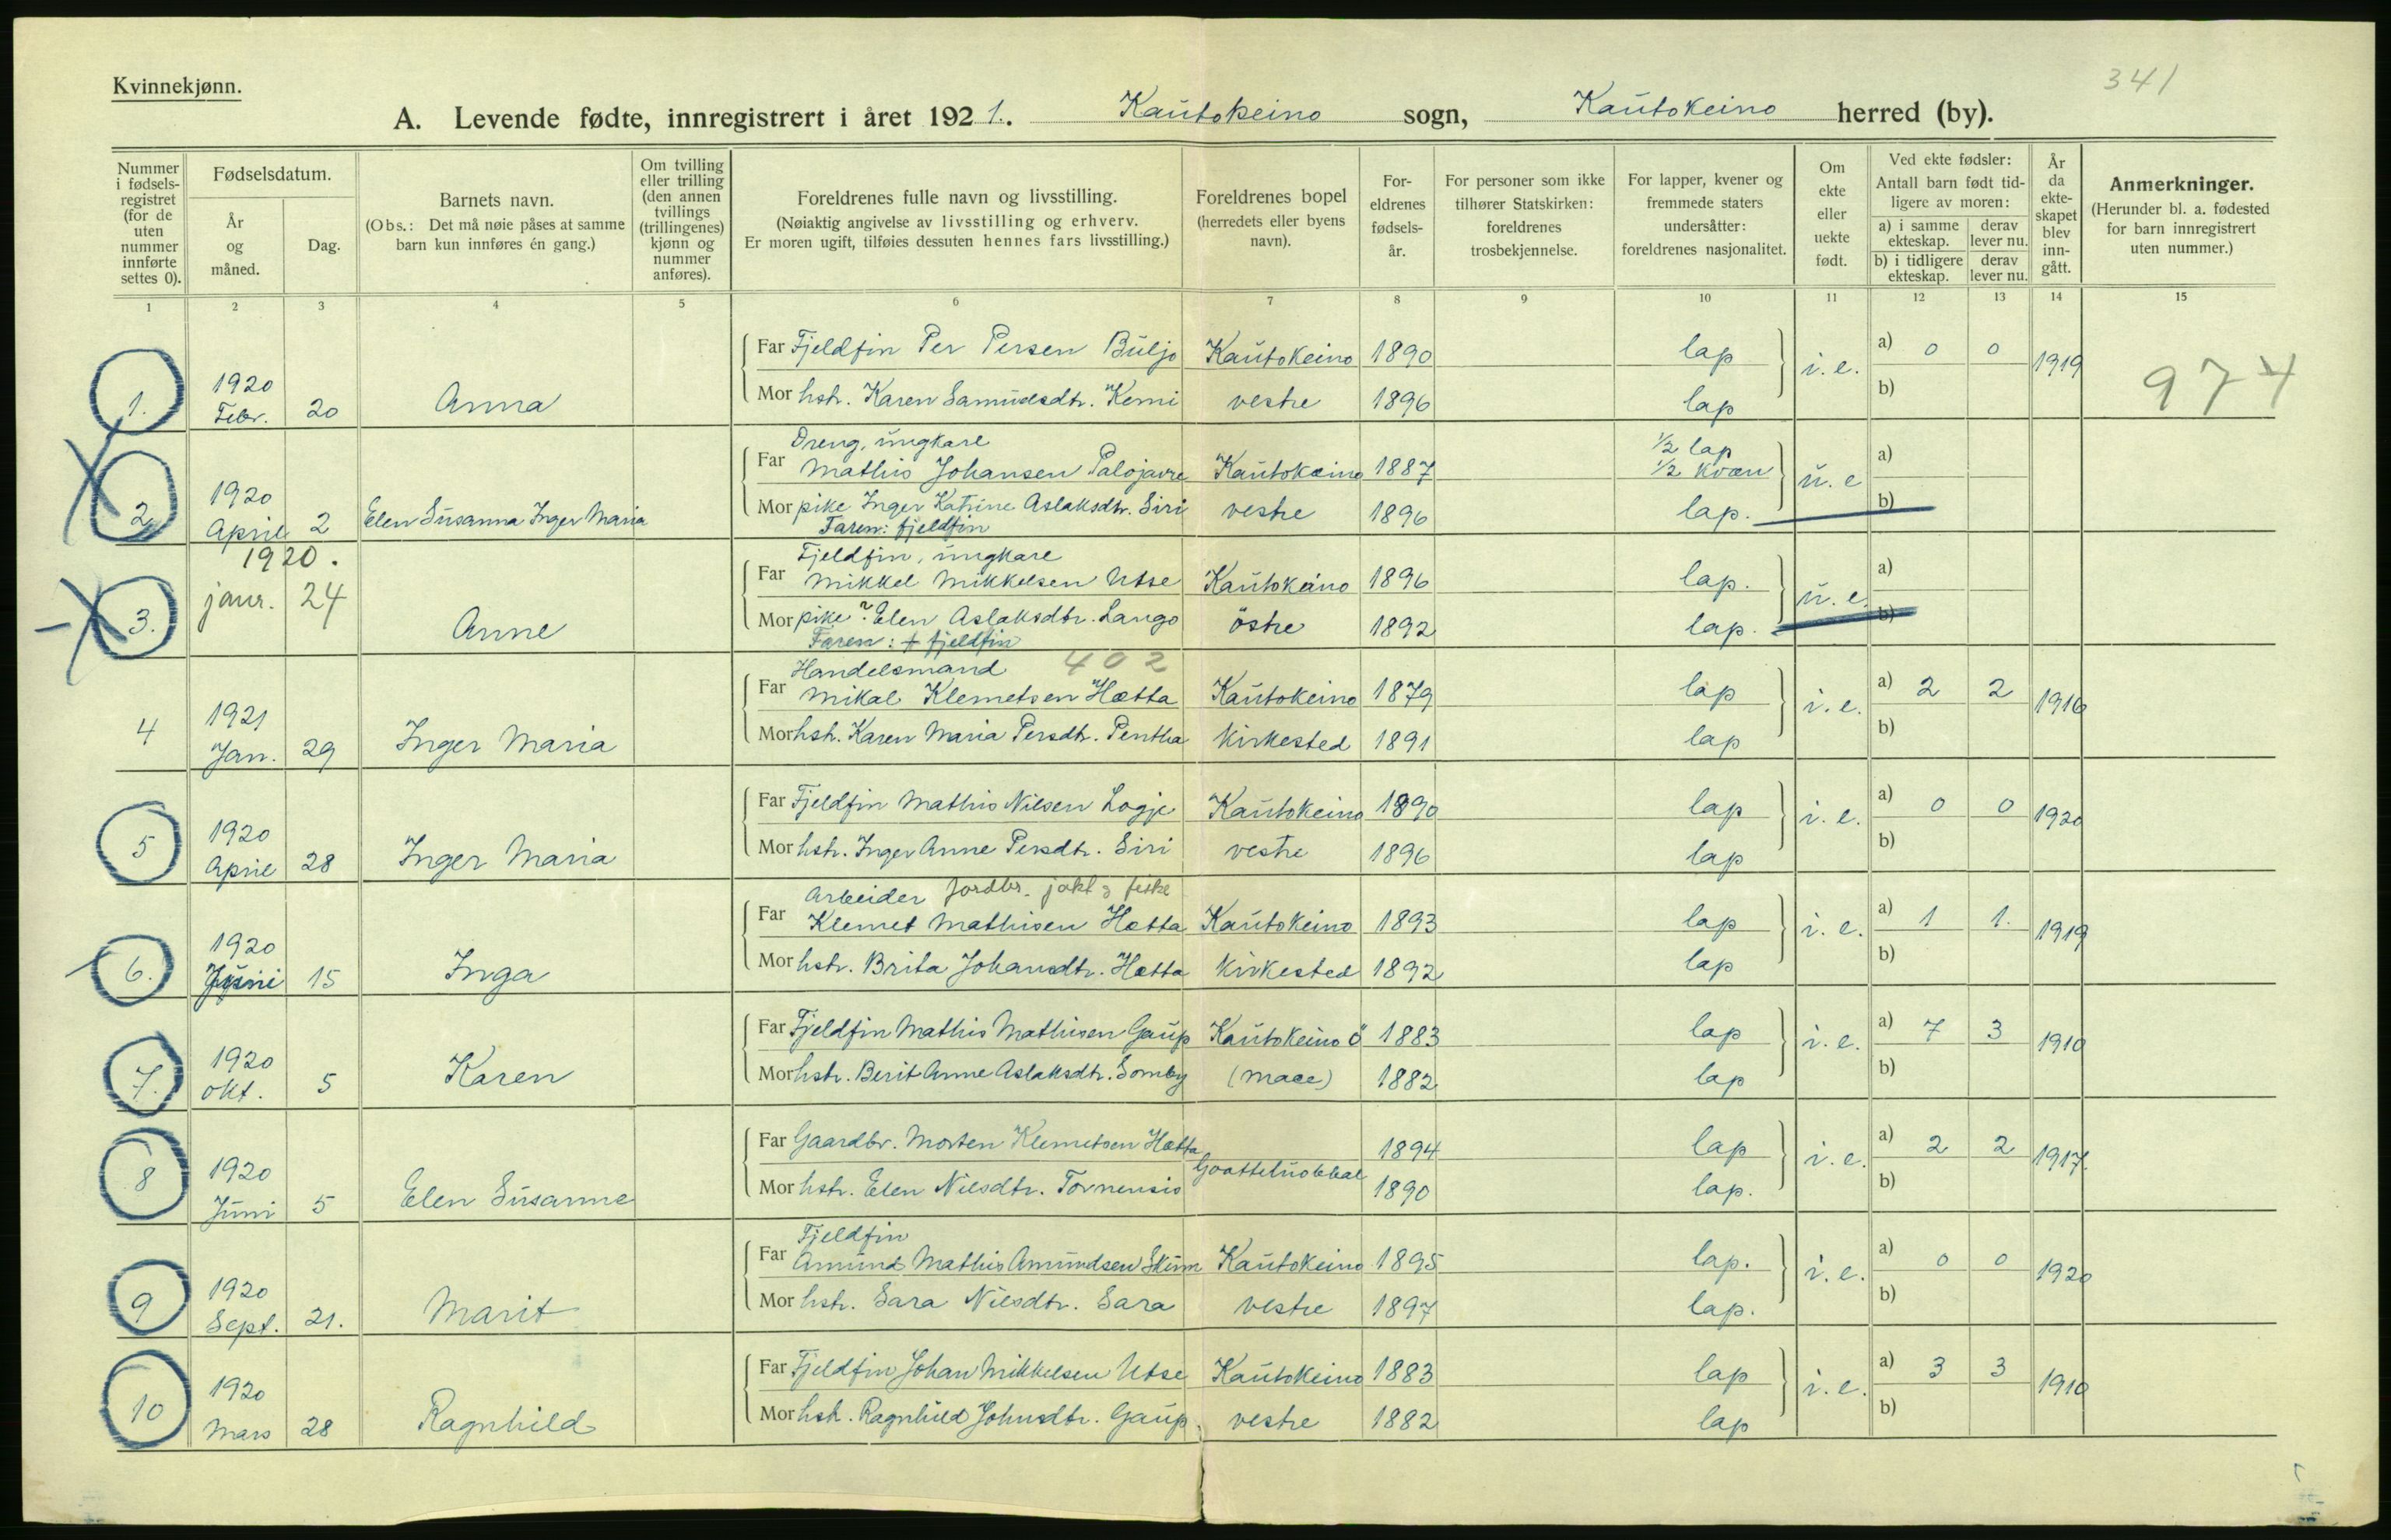 341
Kvinnekjønn.
A. Levende fødte, innregistrert i året 1921. Kautokeino sogn, Kautokeino herred (by).
Nummer i fødsels-registret (for de uten nummer innførte settes 0).
Fødselsdatum.
År og måned.
Dag.
Barnets navn.
(Obs.: Det må nøie påses at samme barn kun innføres én gang.)
Om tvilling eller trilling (den annen tvillings (trillingenes) kjønn og nummer anføres).
Foreldrenes fulle navn og livsstilling.
(Nøiaktig angivelse av livsstilling og erhverv.
Er moren ugift, tilføies dessuten hennes fars livsstilling.)
Foreldrenes bopel (herredets eller byens navn).
For-eldrenes fødsels-år.
For personer som ikke tilhører Statskirken: foreldrenes trosbekjennelse.
For lapper, kvener og fremmede staters undersåtter: foreldrenes nasjonalitet.
Om ekte eller uekte født.
Ved ekte fødsler: Antall barn født tid-ligere av moren:
a) i samme ekteskap. derav lever nu.
b) i tidligere ekteskap. derav lever nu.
År da ekte-skapet blev inn-gått.
Anmerkninger.
(Herunder bl. a. fødested for barn innregistrert uten nummer.)
1 2 3 4 5 6 7 8 9 10 11 12 13 14 15
1. 1920 Febr. 20 Anna
Far Fjeldfin Per Persen Buljo Kautokeino 1890 lap i. e. a) 0 0 1919 974
Mor hstr. Karen Samuelsdtr. Kemi vestre 1896 lap b)
2 1920 April 2 Elen Susanna Inger Maria
Dreng, ungkare
Far Mathis Johansen Palojavre Kautokeino 1887 1/2 lap 1/2 kvæn u. e a)
Mor pike Inger Katrine Aslaksdtr. Siri vestre 1896 lap. b)
Faren: fjeldfin
3. 1920. janr. 24 Anne
Fjeldfin, ungkare
Far Mikkel Mikkelsen Utse Kautokeino 1896 lap. u. e. a)
Mor pike Elen Aslaksdtr. Lango östre 1892 lap. b)
Faren: + fjeldfin
402
4 1921 Jan. 29 Inger Maria
Handelsmand
Far Mikal Klemetsen Hætta Kautokeino 1879 lap i. e. a) 2 2 1916
Mor hstr. Karen Maria Persdtr. Pentha kirkested 1891 lap b)
5 1920 April 28 Inger Maria
Far Fjeldfin Mathis Nilsen Logje Kautokeino 1890 lap i. e. a) 0 0 1920
Mor hstr. Inger Anne Persdtr. Siri vestre 1896 lap b)
6. 1920 Juni 15 Inga
Arbeider Jordbr. jakt & fiske
Far Klemet Mathisen Hætta Kautokeino 1893 lap i. e. a) 1 1. 1919
Mor hstr. Brita Johansdtr. Hætta kirkested 1892 lap b)
7. 1920 Okt. 5 Karen
Far Fjeldfin Mathis Mathisen Gaup Kautokeino ö 1883 lap i. e. a) 7 3 1910
Mor hstr. Berit Anne Aslaksdtr. Somby (Maee) 1882 lap b)
8 1920 Juni 5 Elen Susanne
Far Gaardbr. Morten Klemetsen Hætta 1894 lap i. e. a) 2 2 1917.
Mor hstr. Elen Nilsdtr. Tornensis 1890 lap. b)
9 1920 Sept. 21. Marit
Fjeldfin
Far Amund Mathis Amundsen Skum Kautokeino 1895 lap. i. e. a) 0 0 1920
Mor hstr. Sara Nilsdtr. Sara vestre 1897 lap. b)
10 1920 Mars 28 Ragnhild
Far Fjeldfin Johan Mikkelsen Utse Kautokeino 1883 lap i. e. a) 3 3 1910
Mor hstr. Ragnhild Johnsdtr. Gaup. vestre 1882 lap b)